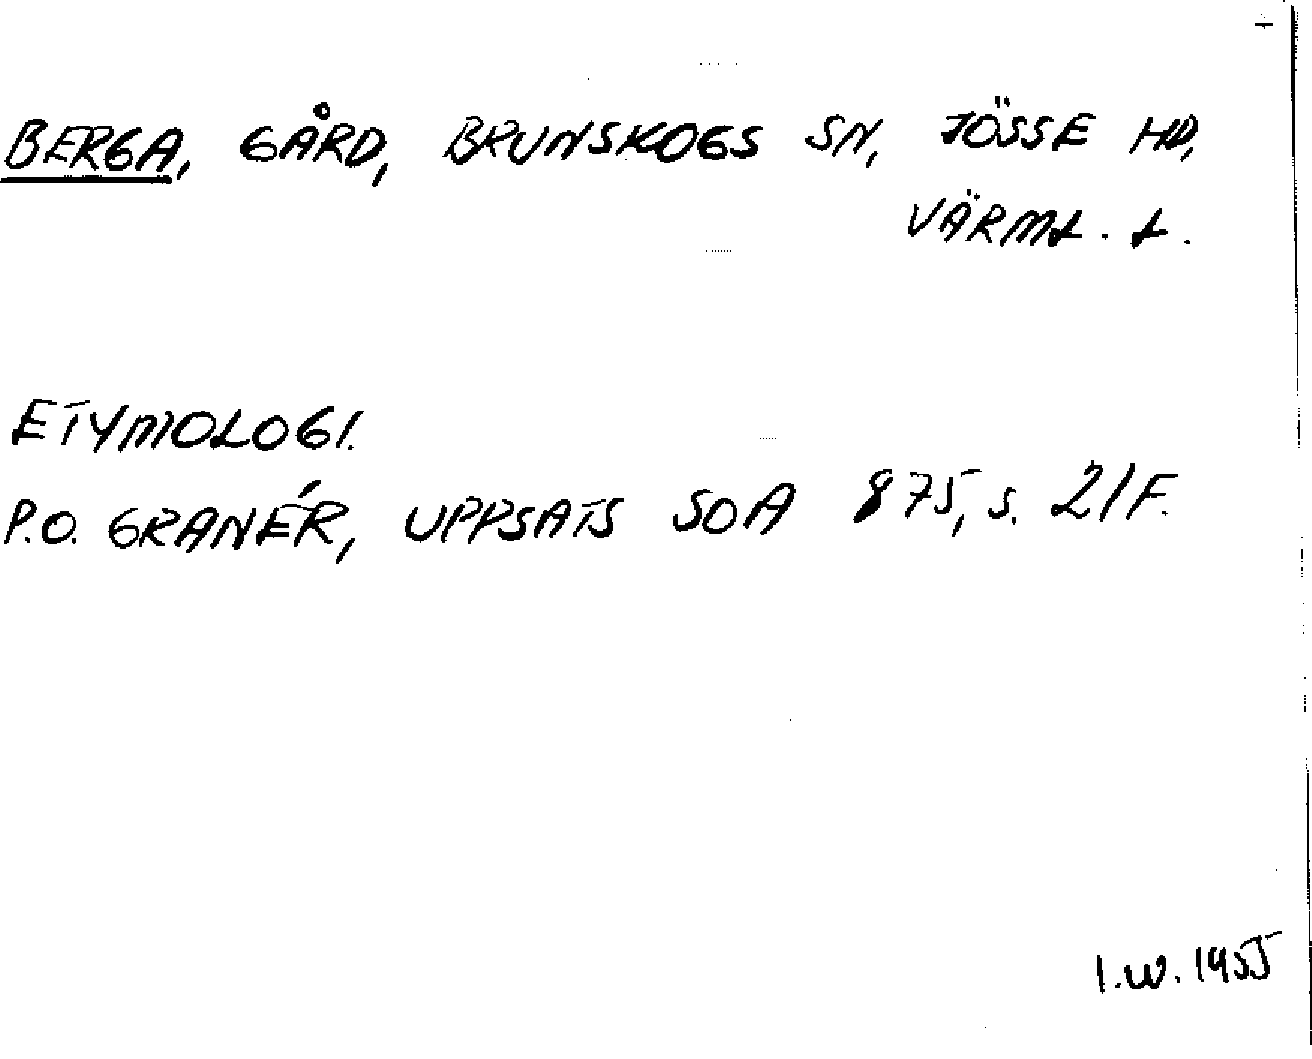 BERGA, GÅRD, BRUNSKOGS SN, JÖSSE HD,
VÄRML. L.
ETYMOLOGI.
P.O. GRANÉR, UPPSATS SOA 875, S. 21F.
I.W. 1955